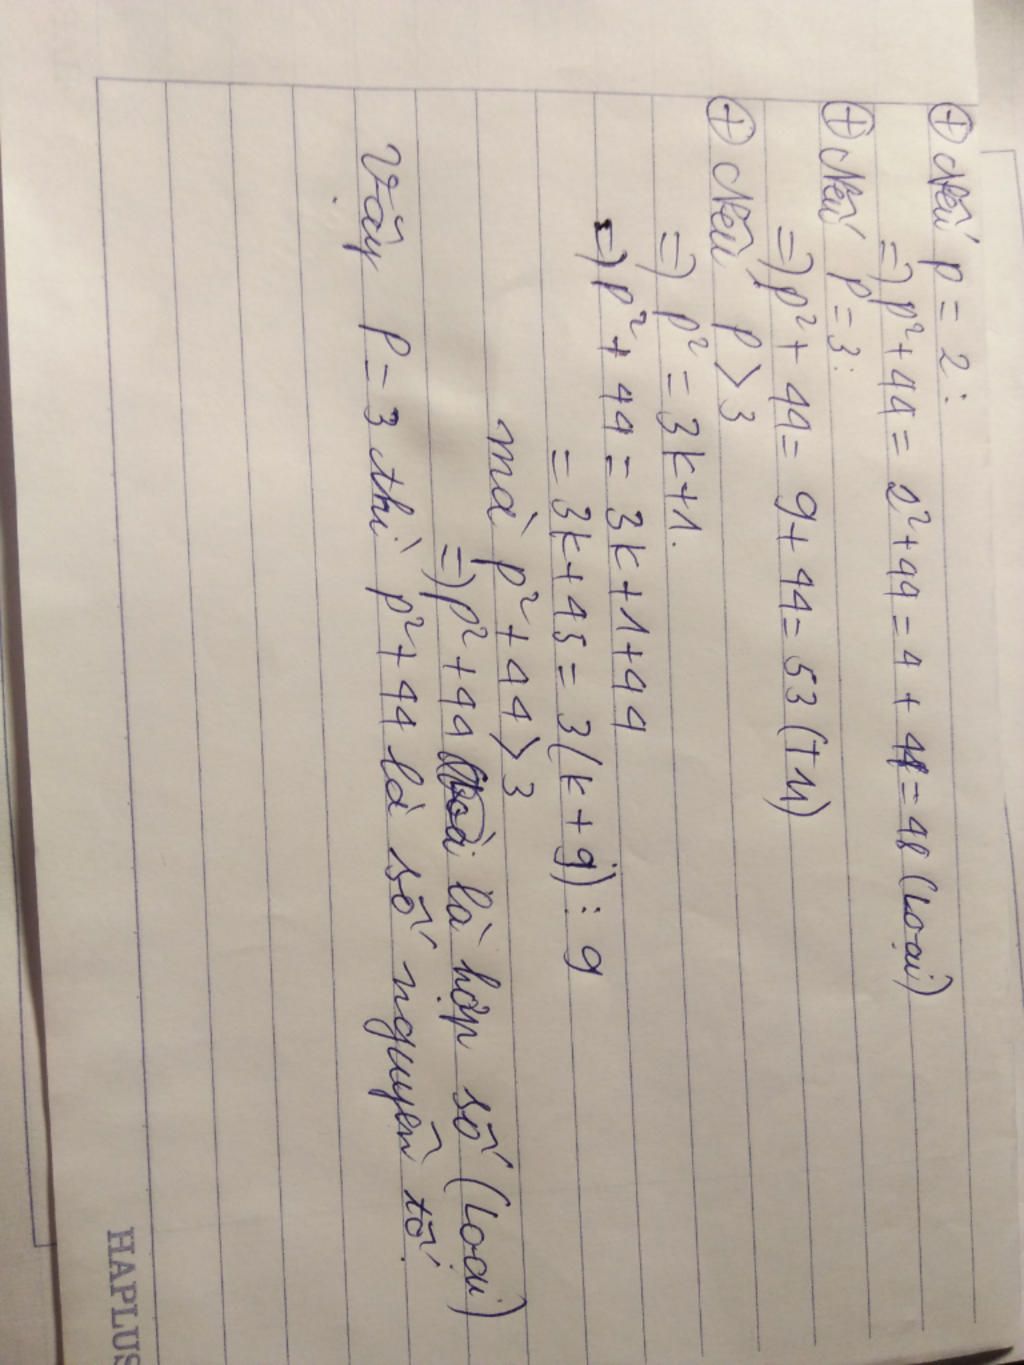 ⊕ Nếu p = 2:
=) p² + 44 = 2² + 44 = 4 + 44 = 48 (Loại)
⊕ Nếu p = 3:
=) p² + 44 = 9 + 44 = 53 (TM)
⊕ Nếu p > 3
=) p² = 3k+1.
=) p² + 44 = 3k + 1 + 44
= 3k + 45 = 3(k + 9) : 9
mà p² + 44 > 3
=) p² + 44 là hợp số (Loại)
Vậy p = 3 thì p² + 44 là số nguyên tố.
HAPLUS